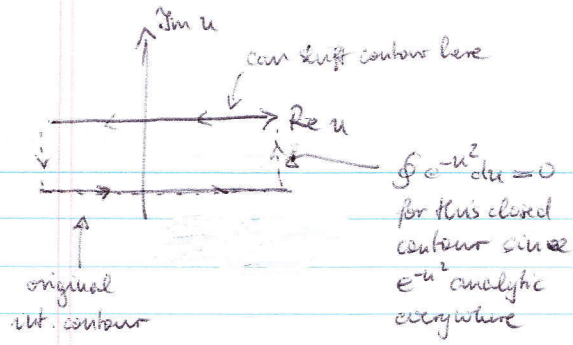 Im u
can shift contour here
Re u
∮ e^{-u^2} du = 0
for this closed
contour since
e^{-u^2} analytic
everywhere
original
int. contour